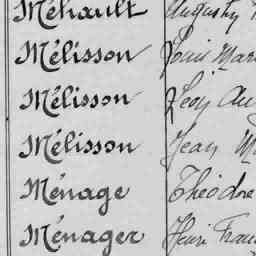 Méhault Augustin
Mélisson Louis Mar
Mélisson Léon Au
Mélisson Jean M
Ménage Théodore
Ménager Henri Fran